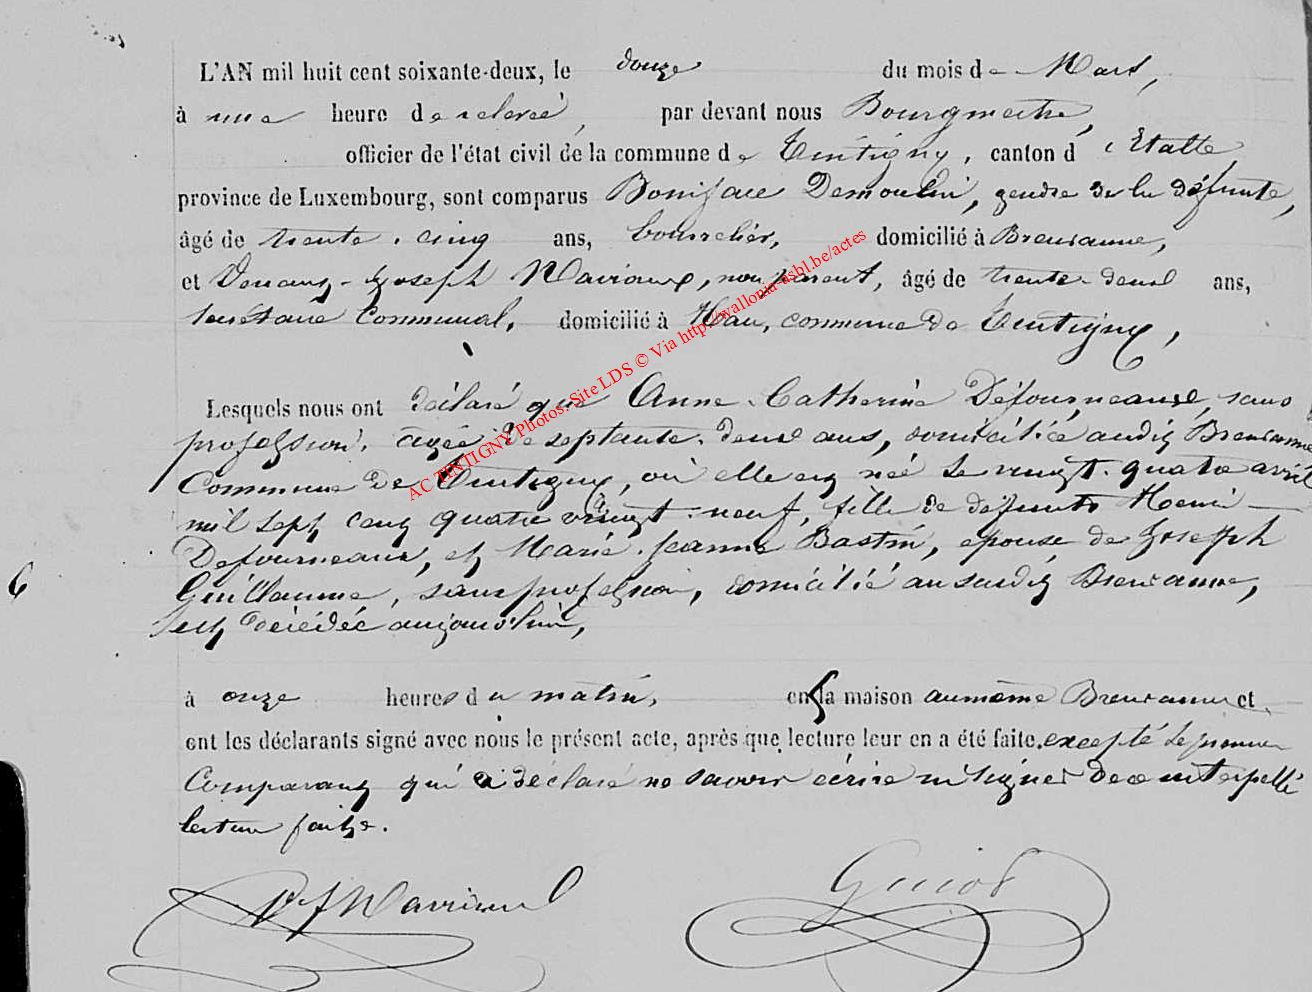 L'AN mil huit cent soixante-deux, le douze du mois de Mars,
à une heure de relevée, par devant nous Bourgmestre,
officier de l'état civil de la commune de Tintigny, canton d'Etalle,
province de Luxembourg, sont comparus Boniface Demoulin, gendre de la défunte,
âgé de trente-cinq ans, bourrelier, domicilié à Breuvanne,
et Joseph Maviaux, non parent, âgé de trente-deux ans,
secrétaire Communal, domicilié à Han, commune de Tintigny,
Lesquels nous ont déclaré que Anne-Catherine Défourneaux, sans
profession, âgée de septante-deux ans, domiciliée audit Breuvanne
Commune de Tintigny, où elle est née le vingt-quatre avril
mil sept cent quatre vingt-neuf, fille de défunts Henri
Defourneaux, et Marie-Jeanne Bastin, épouse de Joseph
Guillaume, sans profession, domicilié au susdit Breuvanne,
est décédée aujourd'hui,
6
à onze heures du matin, en sa maison au même Breuvanne et
ont les déclarants signé avec nous le présent acte, après que lecture leur en a été faite, excepté le premier
Comparant qui a déclaré ne savoir écrire ni signer de ce interpellé
lecture faite.
Guiot
AC TINTIGNY Photos: Site LDS © Via http://wallonia-asbl.be/actes